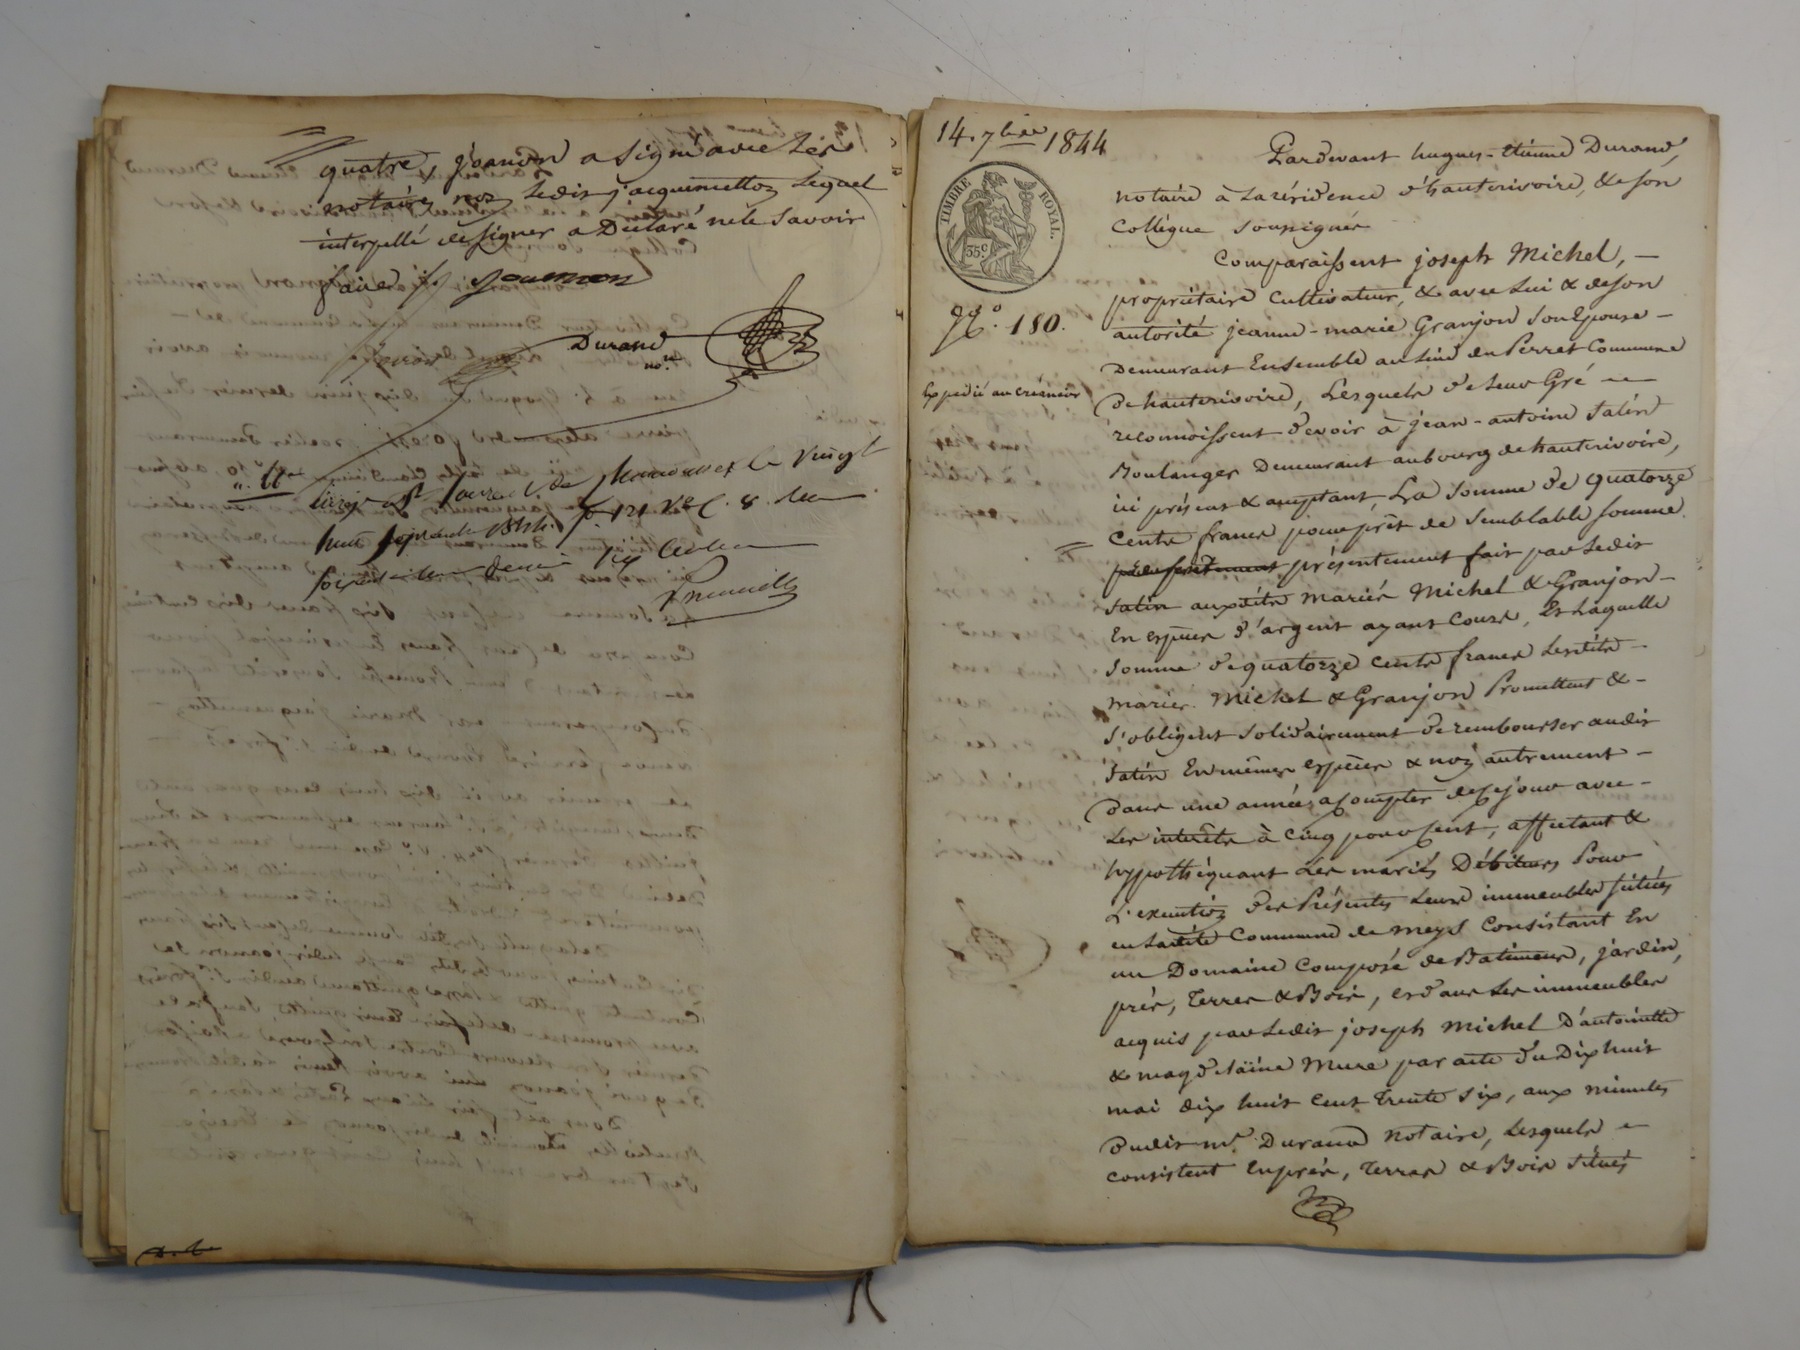 quatre, Joanon a signé avec Les
notaires non Ledit jacquemettoz Lequel
interpellé de signer a Déclaré ne le savoir
faire
Joannon
Durand
no.re
Enregistré à St Laurent de Chamousset Le Vingt
huit septembre 1844. f. 121 Vo C. 8. Reçu
décime
14. 7bre 1844
TIMBRE ROYAL.
35c
No. 180.
Expédié au créancier
Pardevant hugues-Etienne Durand,
notaire à La résidence d'hauterivoire, & son
Collègue soussignés
Comparaissent joseph Michel, —
propriétaire Cultivateur, & avec Lui & de son
autorité jeanne-marie Granjon son Epouse —
Demeurant Ensemble au Lieu du Perret Commune
De hauterivoire, Lesquels de Leur Gré —
reconnoissent devoir à jean-antoine Satin
Boulanger Demeurant au bourg de hauterivoire,
ici présent & acceptant, La somme de quatorze
Cents francs pour prêt de semblable somme
présentement fait par Ledit
Satin auxdits Mariés Michel & Granjon —
En espèces d'argent ayant Cours, Et Laquelle
somme de quatorze cents francs Lesdits —
mariés Michel & Granjon Promettent & —
s'obligent solidairement de rembourser audit
Satin En mêmes espèces & non autrement —
dans une année a compter de ce jour avec —
Les intérêts à Cinq pour cent, affectant &
hypothéquant Les mariés Débiteurs Pour
L'exécution des Présentes Leurs immeubles situés
en Ladite Commune de Meys Consistant En
un Domaine Composé de Batiments, jardin,
prés, Terres & Bois, et dans Les immeubles
acquis par Ledit joseph Michel D'antoinette
& magdelaine Mure par acte du Dix huit
mai dix huit cent Trente six, aux minutes
dudit Me. Durand Notaire, Lesquels —
consistent En prés, Terres & Bois situés